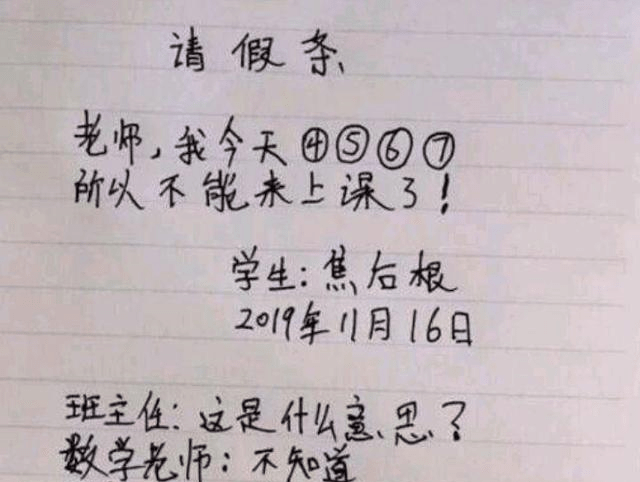 请假条
老师,我今天④⑤⑥⑦
所以不能来上课了!
学生:焦后根
2019年11月16日
班主任:这是什么意思?
数学老师:不知道